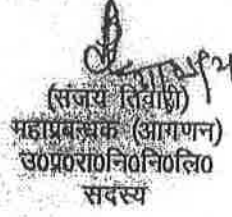 (संजय तिवारी)
महाप्रबन्धक (आगणन)
उ०प्र०रा०नि०नि०लि०
सदस्य